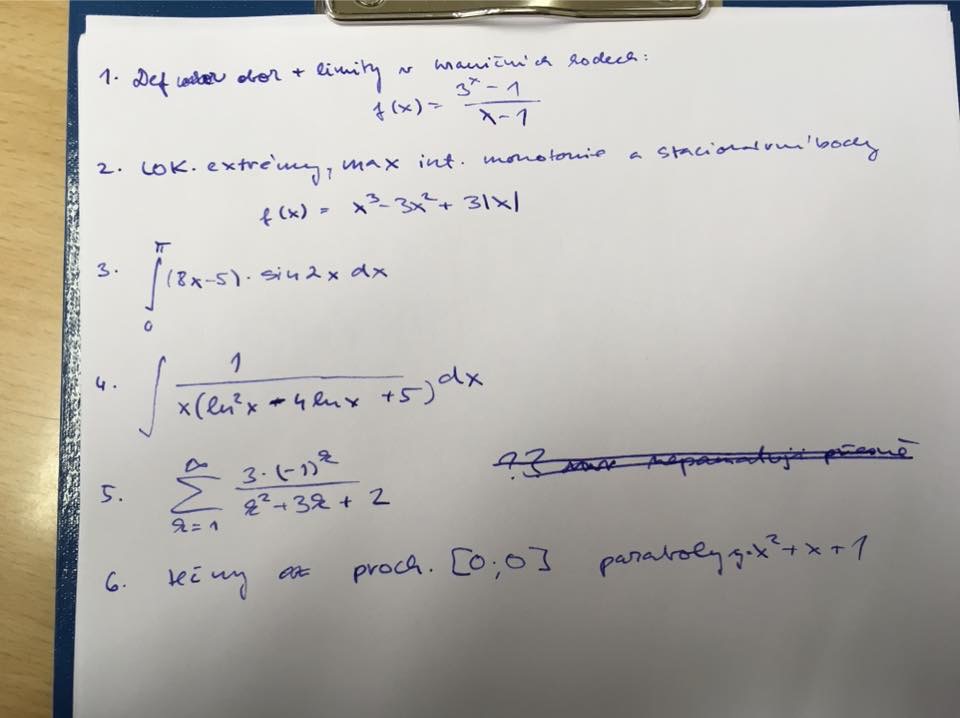 1. Def obor + limity v hraničních bodech:
f(x) = \frac{3^x - 1}{x - 1}
2. LOK. extrémy, max int. monotonie a stacionární body
f(x) = x³ - 3x² + 3|x|
3. \int_0^π (8x-5) · sin 2x dx
4. \int \frac{1}{x(ln²x - 4 ln x + 5)} dx
5. \sum_{k=1}^∞ \frac{3·(-1)^k}{k² + 3k + 2}
6. tečny proch. [0;0] paraboly y=x²+x+1